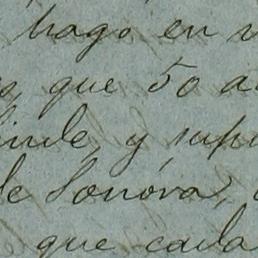 hago en
que 50
linde, y
de Sonora,
que cada